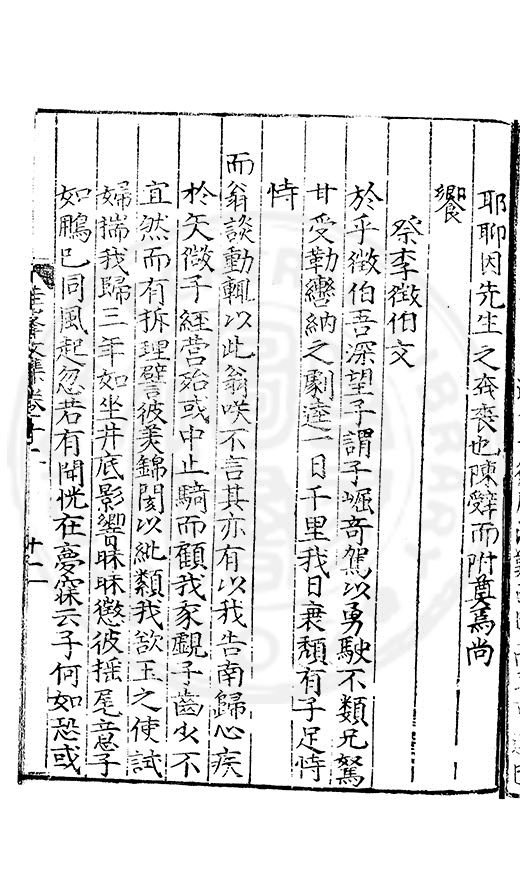 耶聊因先生之奔喪也陳辭而附奠焉尚
饗
祭李徵伯文
於乎徵伯吾深望子謂子崛奇駕以勇駛不類凡駑
甘受勒轡納之劇逵一日千里我日衰頹有子足恃
恃
而翁談動輒以此翁咲不言其亦有以我告南歸心疾
於矢徵子經營殆或中止騎而顧我豕覷子齒少不
宜然而有拆理譬彼美錦閡以紕纇我欲玉之使試
婦揣我歸三年如坐井底影響昧昧懲彼揺尾意子
如鵬已同風起忽若有聞恍在夢寐云子何如恐或
文集卷之
十二